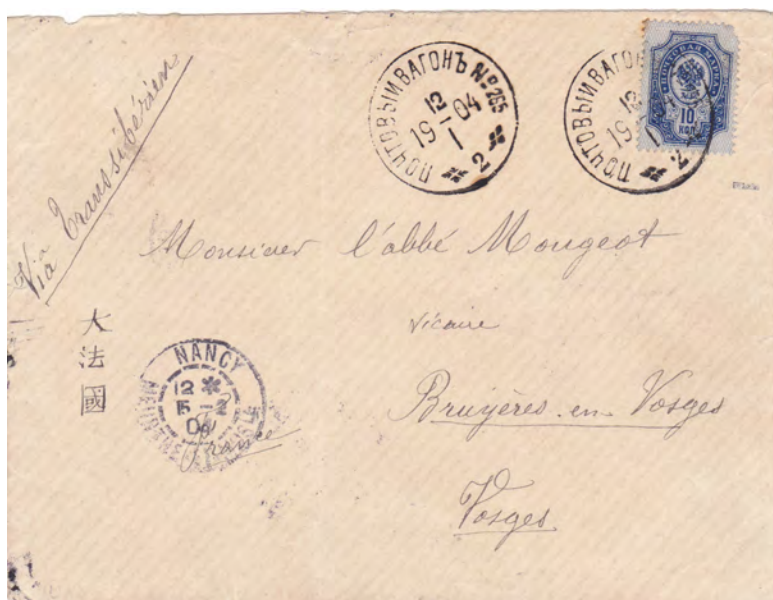 Via Transsibérien
ПОЧТОВЫЙ ВАГОНЪ № 265
12
19 – 04
I
2
ПОЧТОВЫЙ ВАГОН
12
19
I
2
ПОЧТОВАЯ МАРКА
10
КОП.
Monsieur l'abbé Mougeot
vicaire
Bruyères-en-Vosges
Vosges
大法國
France
NANCY
12 *
15 – 2
04